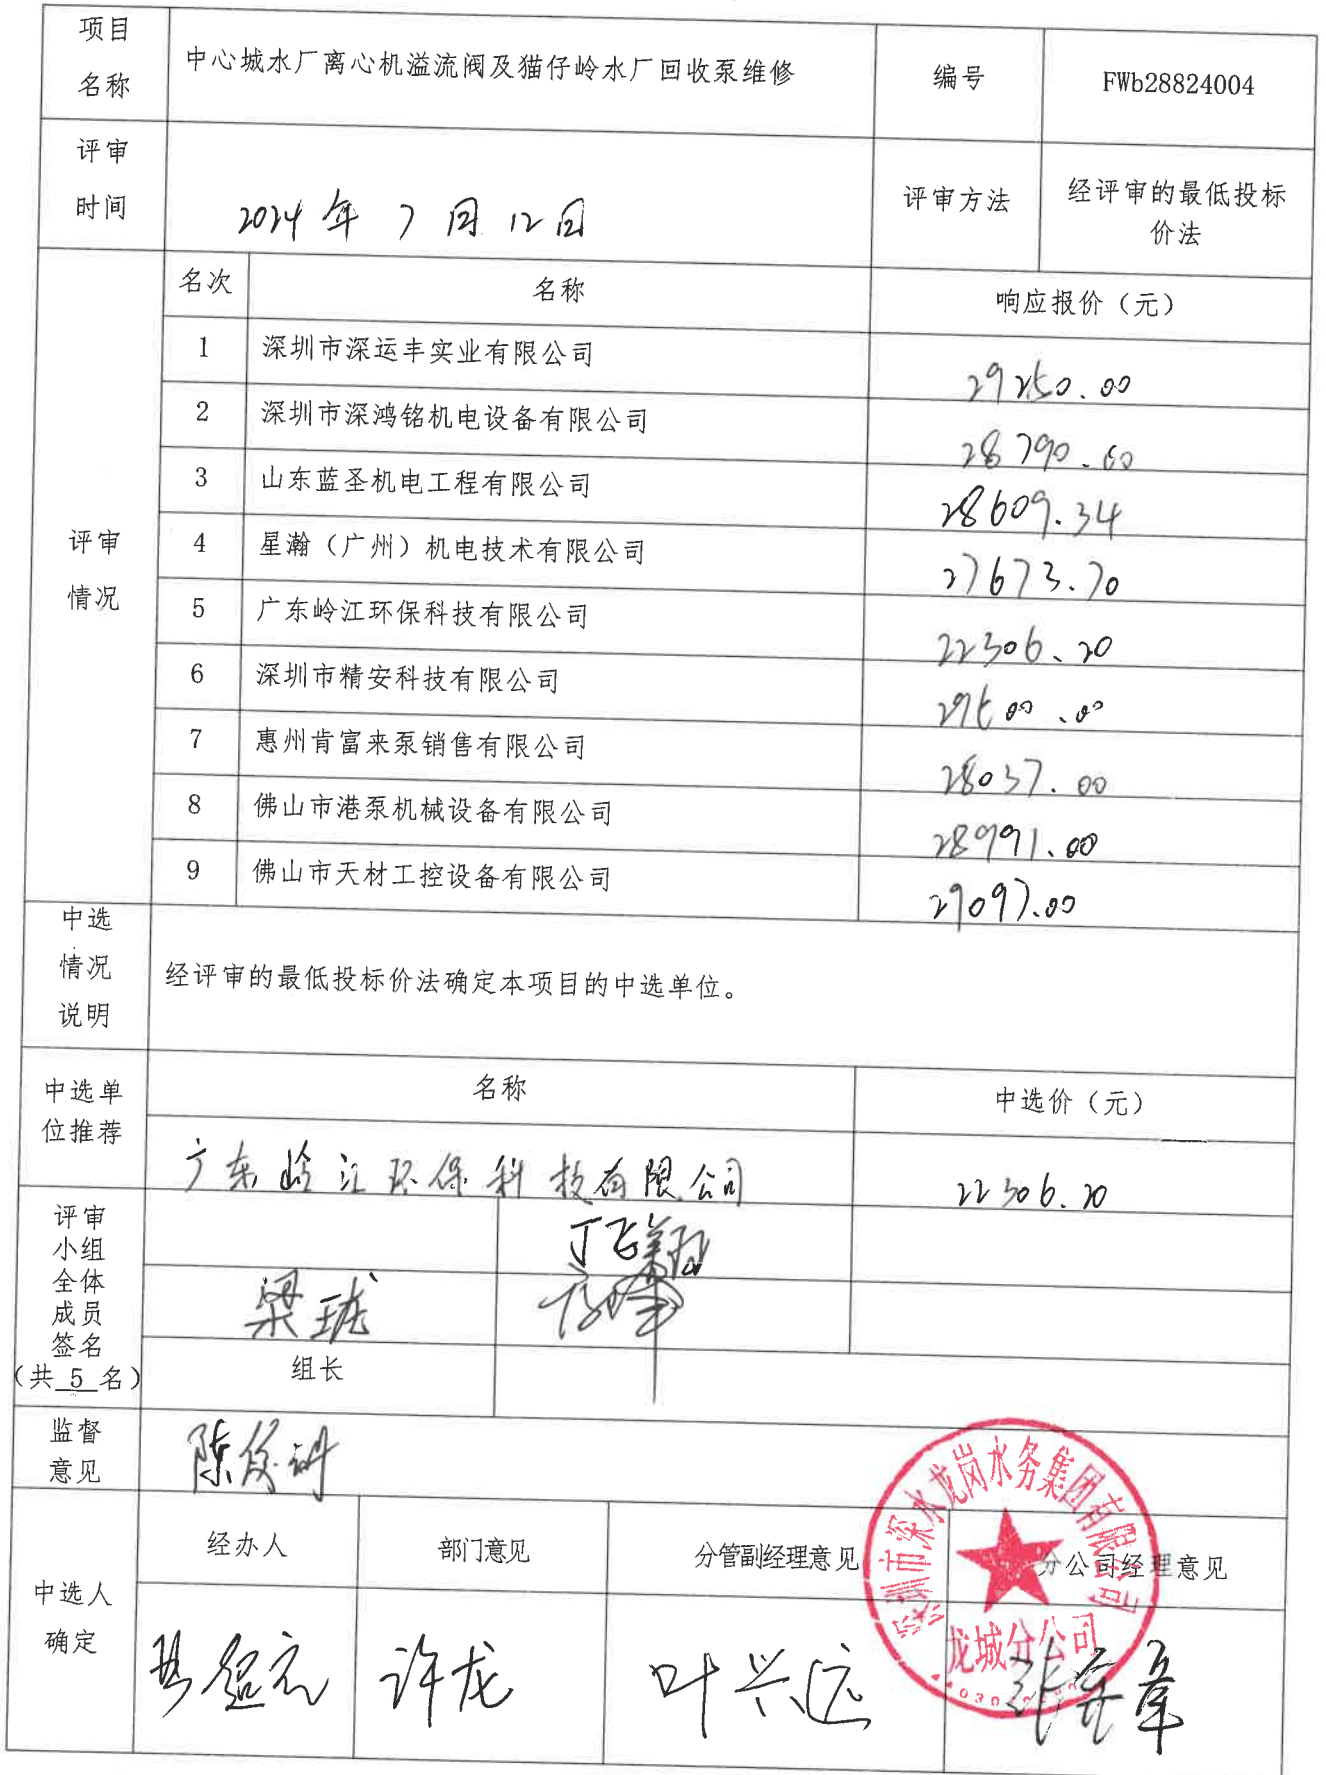 项目
名称
中心城水厂离心机溢流阀及猫仔岭水厂回收泵维修
编号
FWb28824004
评审
时间
2024年7月12日
评审方法
经评审的最低投标
价法
评审
情况
名次
名称
响应报价（元）
1
深圳市深运丰实业有限公司
29250.00
2
深圳市深鸿铭机电设备有限公司
28790.00
3
山东蓝圣机电工程有限公司
28609.34
4
星瀚（广州）机电技术有限公司
27673.70
5
广东岭江环保科技有限公司
22306.20
6
深圳市精安科技有限公司
29500.00
7
惠州肯富来泵销售有限公司
28037.00
8
佛山市港泵机械设备有限公司
28991.00
9
佛山市天材工控设备有限公司
29097.00
中选
情况
说明
经评审的最低投标价法确定本项目的中选单位。
中选单
位推荐
名称
中选价（元）
广东岭江环保科技有限公司
22306.20
评审
小组
全体
成员
签名
（共 5 名）
丁飞翔
梁珑
组长
监督
意见
陈俊
中选人
确定
经办人
部门意见
分管副经理意见
分公司经理意见
许龙
叶兴远
深圳市深水龙岗水务集团有限公司
龙城分公司